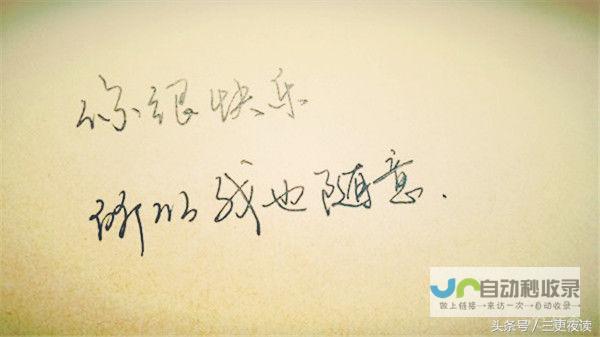 你很快乐
所以我也随意.
自动秒收录
做上链接→来访一次→自动收录
头条号/三更夜读